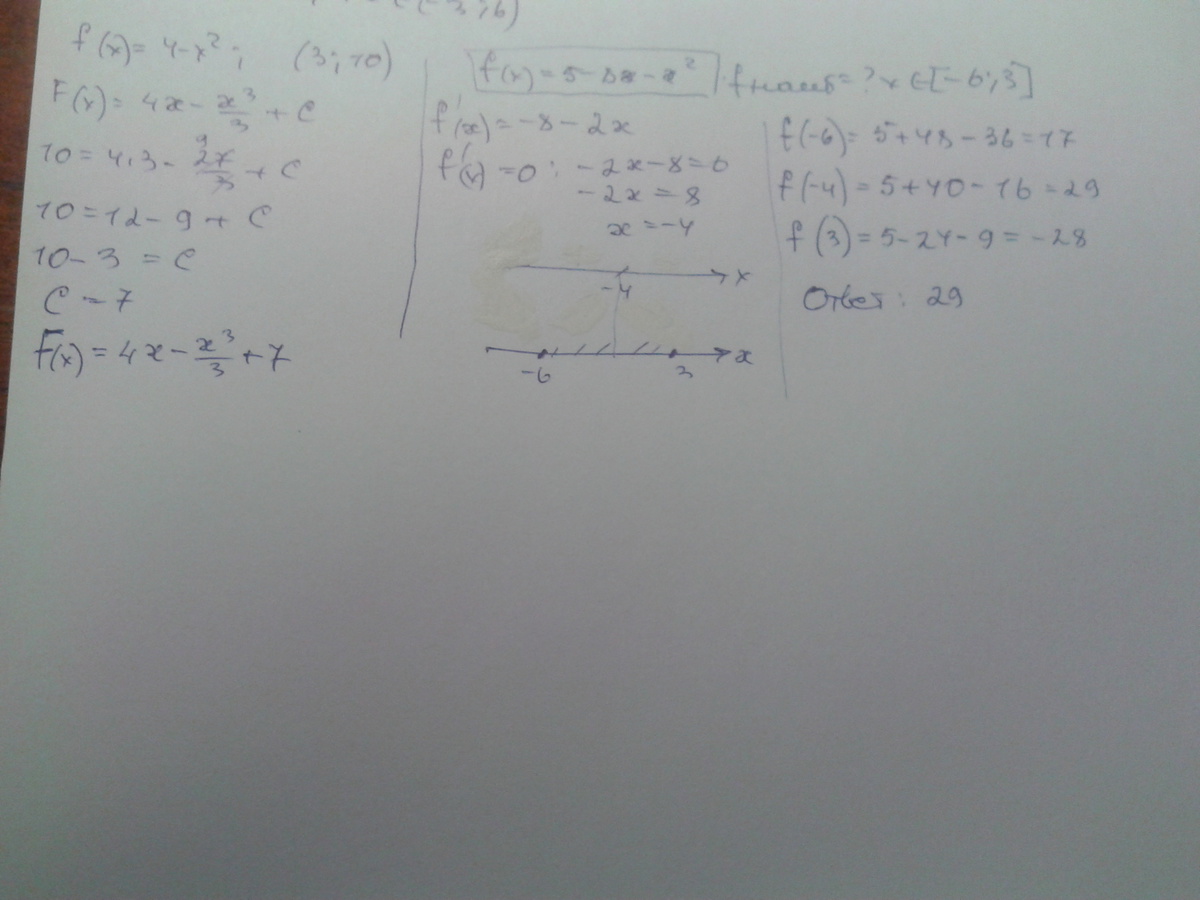 ; 6)
f(x) = 4-x²; (3; 10)
F(x) = 4x - x³/3 + C
10 = 4·3 - 27/3 + C
9
10 = 12 - 9 + C
10 - 3 = C
C = 7
F(x) = 4x - x³/3 + 7
f(x) = 5-8x-x² fнаиб = ? x ∈ [-6; 3]
f'(x) = -8 - 2x
f'(x) = 0: -2x - 8 = 0
-2x = 8
x = -4
-4 x
-6 3 x
f(-6) = 5 + 48 - 36 = 17
f(-4) = 5 + 40 - 16 = 29
f(3) = 5 - 24 - 9 = -28
Ответ: 29